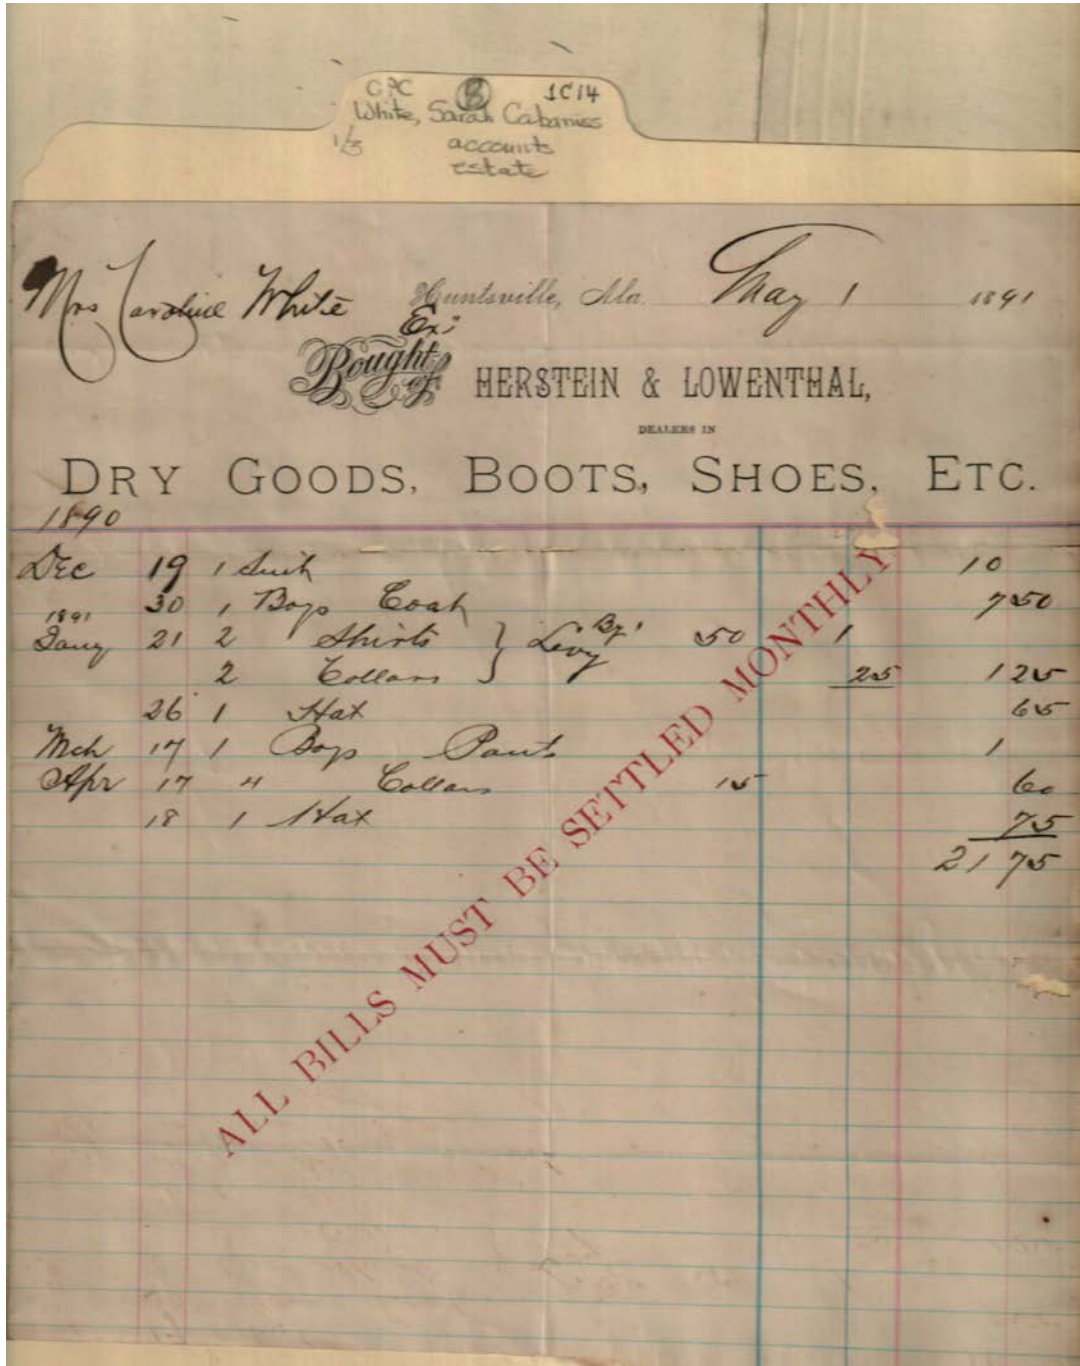 CPC 8 1C14
White, Sarah Cabaniss
1/3 accounts
estate
Mrs Caroline White Huntsville, Ala. May 1 1891
Ex:
Bought of HERSTEIN & LOWENTHAL,
DEALERS IN
DRY GOODS, BOOTS, SHOES, ETC.
1890
Dec 19 1 Suit 10
30 1 Boys Coat 7 50
1891
Jany 21 2 Shirts } By Levy 50 1
2 Collars 25 1 25
26 1 Hat 65
Mch 17 1 Boys Pants 1
Apr 17 4 Collars 15 60
18 1 Hat 75
21 75
ALL BILLS MUST BE SETTLED MONTHLY